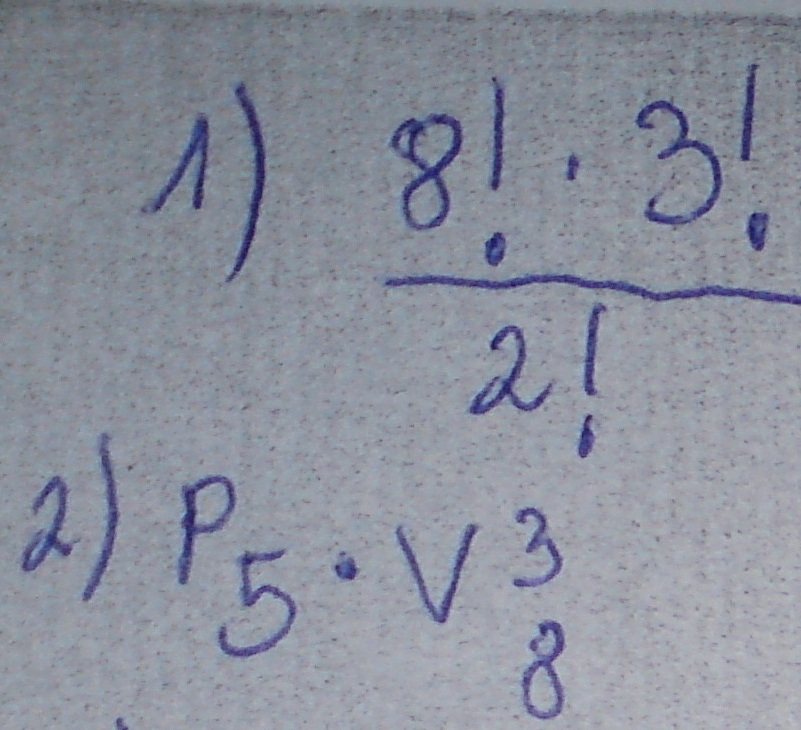 1) 8! · 3!
2!
2) P5 · V3 8